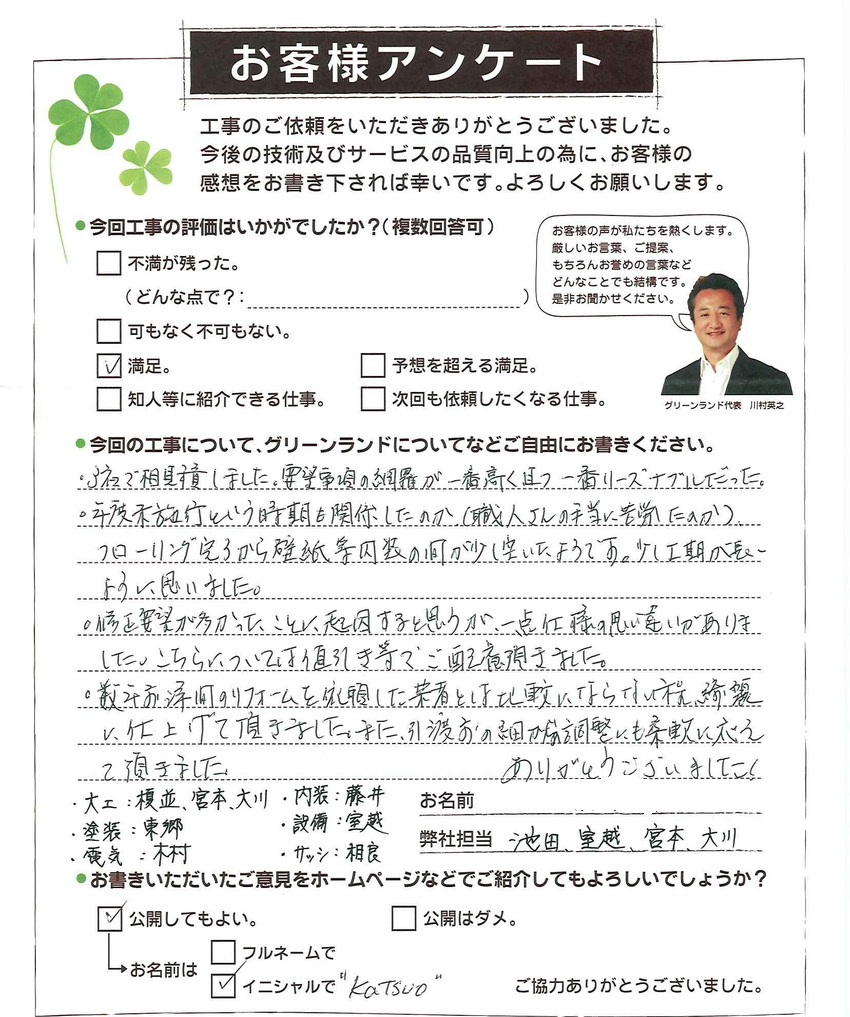 お客様アンケート
工事のご依頼をいただきありがとうございました。
今後の技術及びサービスの品質向上の為に、お客様の
感想をお書き下されば幸いです。よろしくお願いします。
●今回工事の評価はいかがでしたか？(複数回答可)
不満が残った。
(どんな点で？: )
可もなく不可もない。
満足。
予想を超える満足。
知人等に紹介できる仕事。
次回も依頼したくなる仕事。
お客様の声が私たちを熱くします。
厳しいお言葉、ご提案、
もちろんお誉めの言葉など
どんなことでも結構です。
是非お聞かせください。
グリーンランド代表 川村英之
●今回の工事について、グリーンランドについてなどご自由にお書きください。
・3社で相見積しました。要望事項の網羅が一番高く且つ一番リーズナブルだった。
・年度末施行という時期も関係したのか、(職人さんの手当に苦労したのか)、
フローリング完了から壁紙等内装の間が少し空いたようです。少し工期が長い
ように思いました。
・修正要望が多かったことに起因すると思うが、一点仕様の思い違いがありま
した。こちらについては値引き等でご配慮頂きました。
・数年前 のリフォームを依頼した業者とは比較にならない程、綺麗
に仕上げて頂きました。また、引渡前の細かな調整にも柔軟に応え
て頂きました。 ありがとうございました!
・大工：榎並、宮本、大川
・内装：藤井
・塗装：東郷
・設備：室越
・電気：木村
・サッシ：相良
お名前
弊社担当 池田、室越、宮本、大川
●お書きいただいたご意見をホームページなどでご紹介してもよろしいでしょうか？
公開してもよい。
公開はダメ。
お名前は
フルネームで
イニシャルで "Katsuo"
ご協力ありがとうございました。